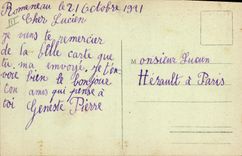 Romeneau le 21 Octobre 1921
Cher Lucien
je viens te remercier
de la belle carte que
tu ma envoyé. je t'en
voie bien le bonjour
ton amis qui pense à
toi Geneste Pierre
Monsieur Lucien
Hérault à Paris